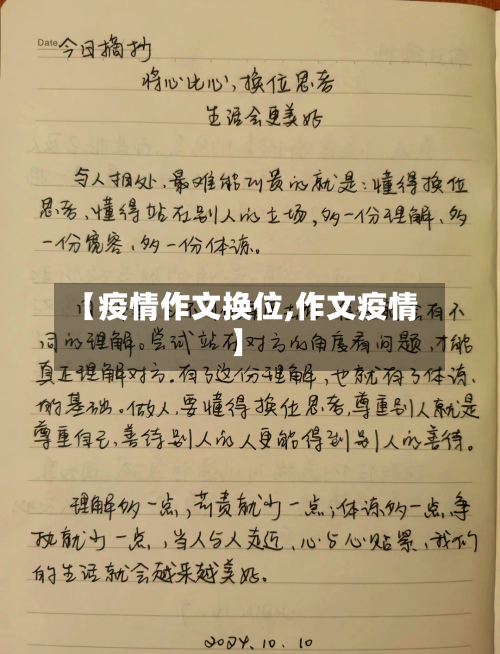 Date 今日摘抄
将心比心，换位思考
生活会更美好
与人相处，最难能可贵的就是：懂得换位
思考，懂得站在别人的立场，多一份理解，多
一份宽容，多一份体谅。
有不
【疫情作文换位,作文疫情
】
同的理解。尝试站在对方的角度看问题，才能
真正理解对方。有了这份理解，也就有了体谅
的基础。做人，要懂得换位思考，尊重别人就是
尊重自己，善待别人的人更能得到别人的善待。
理解多一点，苛责就少一点；体谅多一点，争
执就少一点，当人与人走近、心与心贴紧，我们
的生活就会越来越美好。
2024.10.10